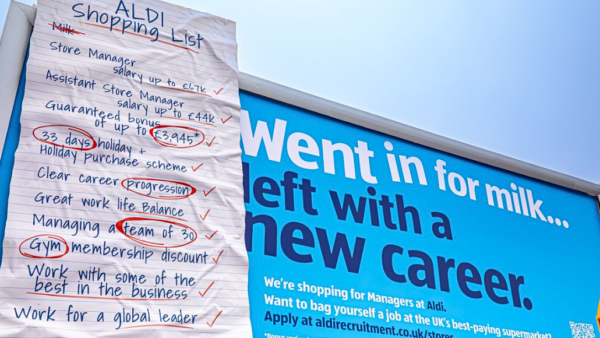 ALDI
Shopping List
Milk
Store Manager
salary up to £67k
Assistant Store Manager
salary up to £44k
Guaranteed bonus
of up to £3,945*
33 days holiday +
Holiday purchase scheme
Clear career progression
Great work life Balance
Managing a team of 30
Gym membership discount
Work with some of the
best in the business
Work for a global leader
Went in for milk...
left with a
new career.
We're shopping for Managers at Aldi.
Want to bag yourself a job at the UK's best-paying supermarket?
Apply at aldirecruitment.co.uk/stores